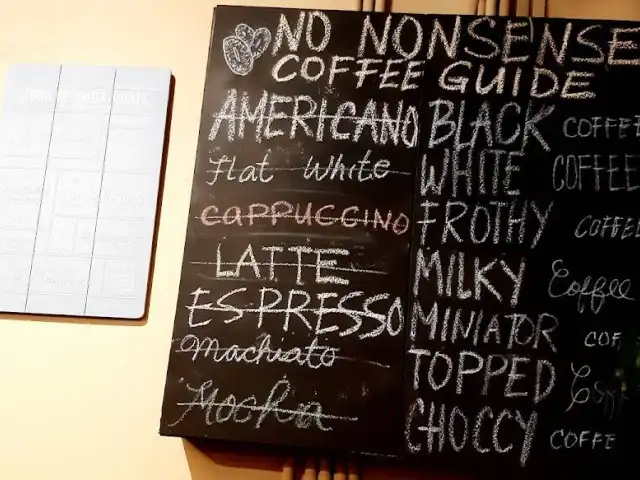 NO NONSENSE
COFFEE GUIDE
AMERICANO BLACK COFFEE
Flat White WHITE COFFEE
CAPPUCCINO FROTHY COFFEE
LATTE MILKY Coffee
ESPRESSO MINIATOR COF
Machiato TOPPED
Mocha CHOCCY COFFE